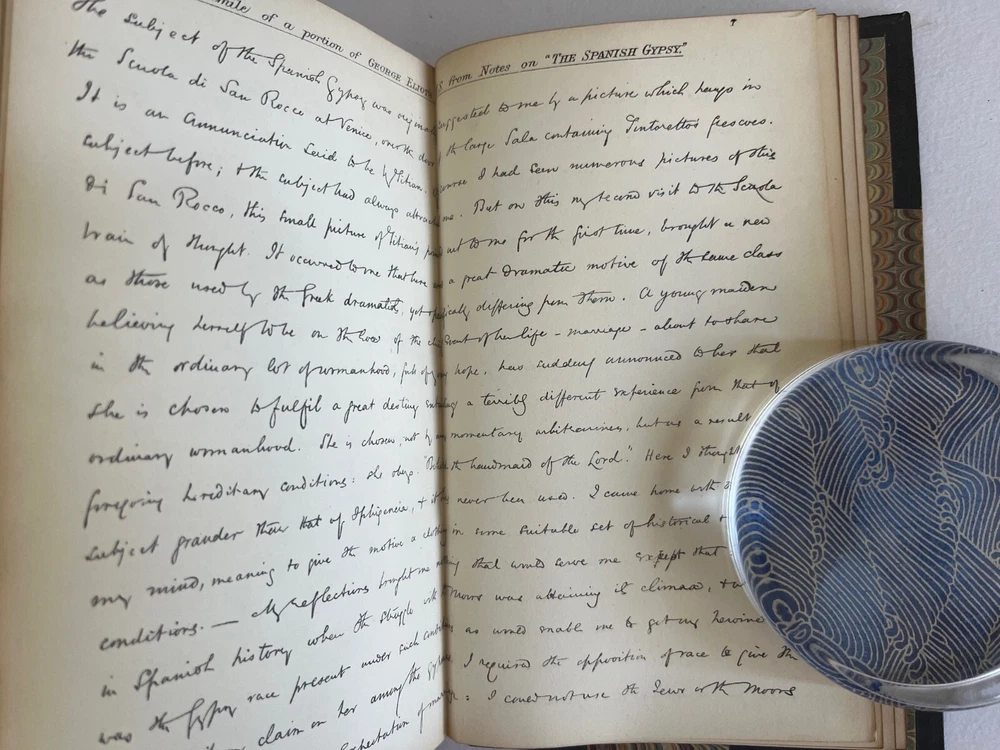 mile of a portion of GEORGE ELIOT'S from Notes on "THE SPANISH GYPSY."
The subject of the Spanish Gypsy was originally suggested to me by a picture which hangs in
the Scuola di San Rocco at Venice, over the door of the large Sala containing Tintoretto's frescoes.
It is an Annunciation said to be by Titian. Of course I had seen numerous pictures of this
subject before; & the subject had always attracted me. But on this my second visit to the Scuola
di San Rocco, this small picture of Titian's pointed out to me for the first time, brought a new
train of thought. It occurred to me that here was a great dramatic motive of the same class
as those used by the Greek dramatists, yet specifically differing from them. A young maiden
believing herself to be on the eve of the chief event of her life – marriage – about to share
in the ordinary lot of womanhood, full of young hope, has suddenly announced to her that
she is chosen to fulfil a great destiny entailing a terribly different experience from that of
ordinary womanhood. She is chosen, not by any momentary arbitrariness, but as a result
foregoing hereditary conditions: she obeys. "Behold the handmaid of the Lord." Here I thought
subject grander than that of Iphigenia, & it has never been used. I came home with
my mind, meaning to give the motive a clothing in some suitable set of historical &
conditions. — My reflections brought me nothing that would serve me except that
in Spanish history when the struggle with the Moors was attaining its climax, &
was the Gypsy race present under such conditions as would enable me to get my heroine
claim on her among the Gypsies. I required the opposition of race to give the
expectation of marriage: I could not use the Jews or the Moors